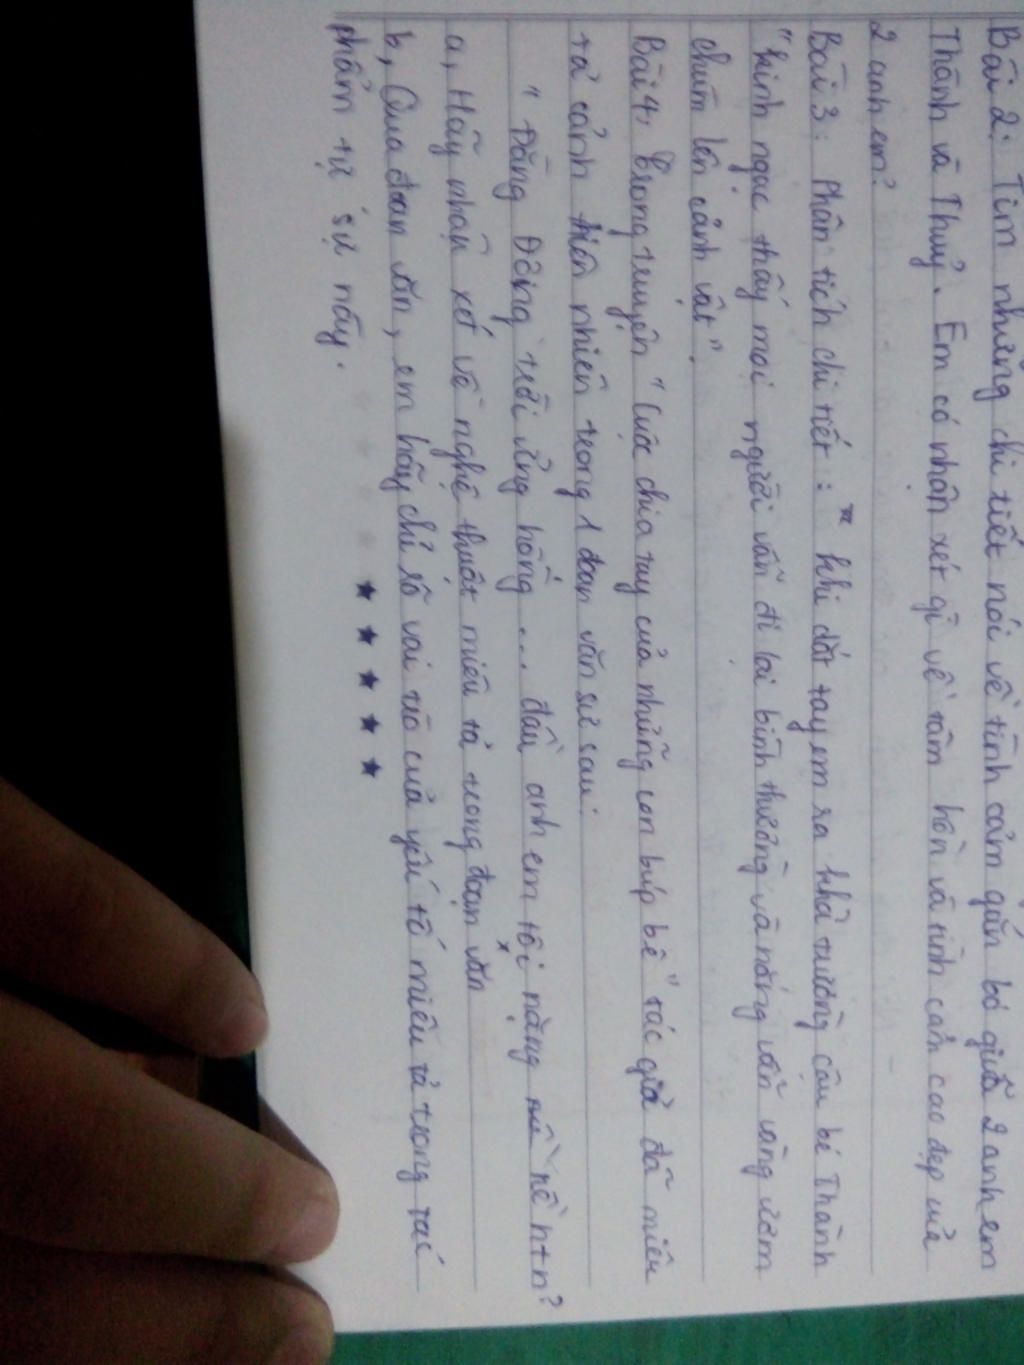 Bài 2: Tìm những chi tiết nói về tình cảm gắn bó giữa 2 anh em
Thành và Thuỷ. Em có nhận xét gì về tâm hồn và tình cảm cao đẹp của
2 anh em?
Bài 3: Phân tích chi tiết: " khi dắt tay em ra khỏi trường cậu bé Thành
"kinh ngạc thấy mọi người vẫn đi lại bình thường và nắng vẫn vàng ươm
chùm lên cảnh vật"
Bài 4, trong truyện " Cuộc chia tay của những con búp bê" tác giả đã miêu
tả cảnh thiên nhiên trong 1 đoạn văn sư sau:
" Đằng Đông trời ửng hồng ... đầu anh em tôi nặng nề ntn?
a, Hãy nhận xét về nghệ thuật miêu tả trong đoạn văn
b, Qua đoạn văn, em hãy chỉ rõ vai trò của yếu tố miêu tả trong tác
phẩm tự sự này.